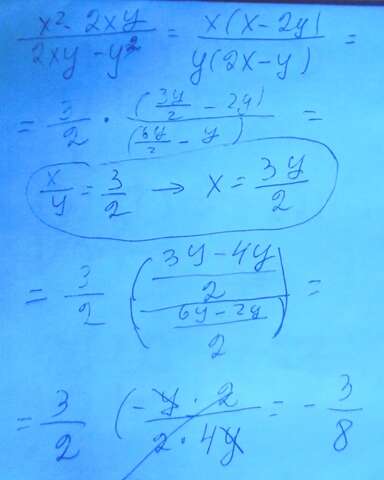 \frac{x^2 - 2xy}{2xy - y^2} = \frac{x(x - 2y)}{y(2x - y)} =
= \frac{3}{2} \cdot \frac{(\frac{3y}{2} - 2y)}{(\frac{6y}{2} - y)} =
\frac{x}{y} = \frac{3}{2} \rightarrow x = \frac{3y}{2}
= \frac{3}{2} \left( \frac{\frac{3y - 4y}{2}}{\frac{6y - 2y}{2}} \right) =
= \frac{3}{2} \left( \frac{-y \cdot 2}{2 \cdot 4y} = -\frac{3}{8}